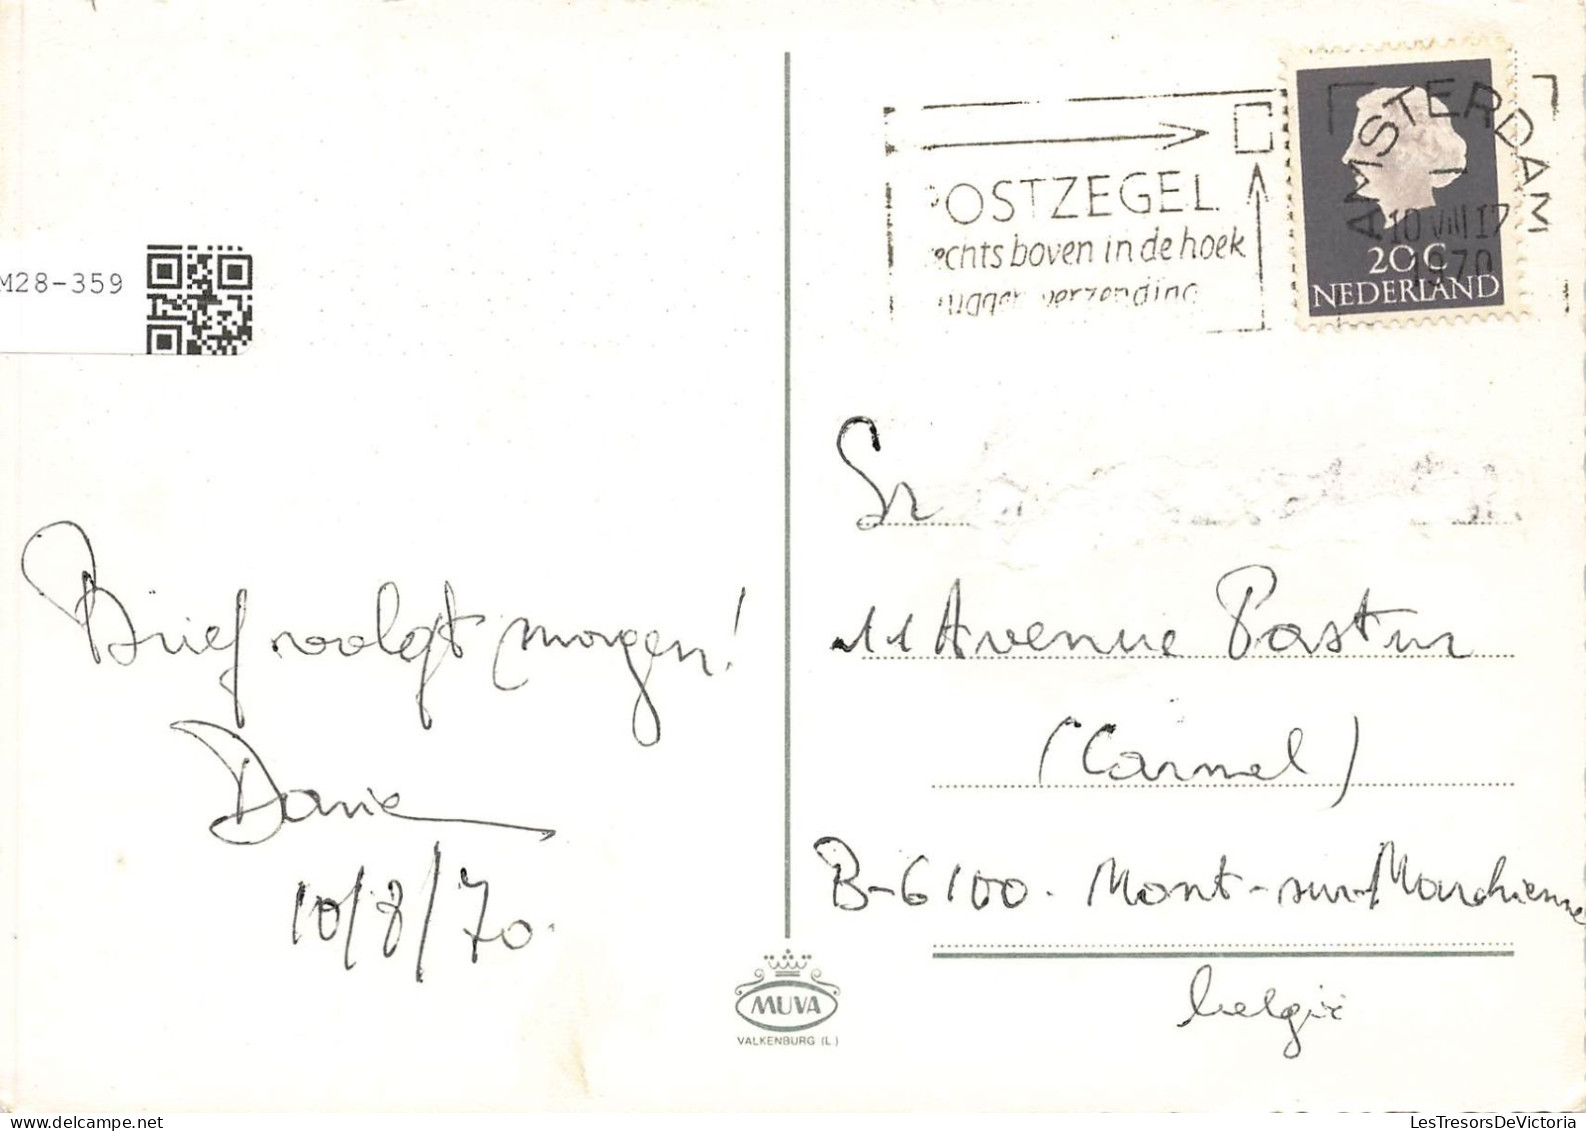 M28-359
OSTZEGEL
chts boven in de hoek
verzending
AMSTERDAM
10 VIII 17
1970
20 C
NEDERLAND
Brief volgt morgen!
10/8/70.
Sr
11 Avenue Pasteur
(Carmel)
B-6100. Mont-sur-Marchienne
België
MUVA
VALKENBURG (L.)
LesTresorsDeVictoria
delcampe.net